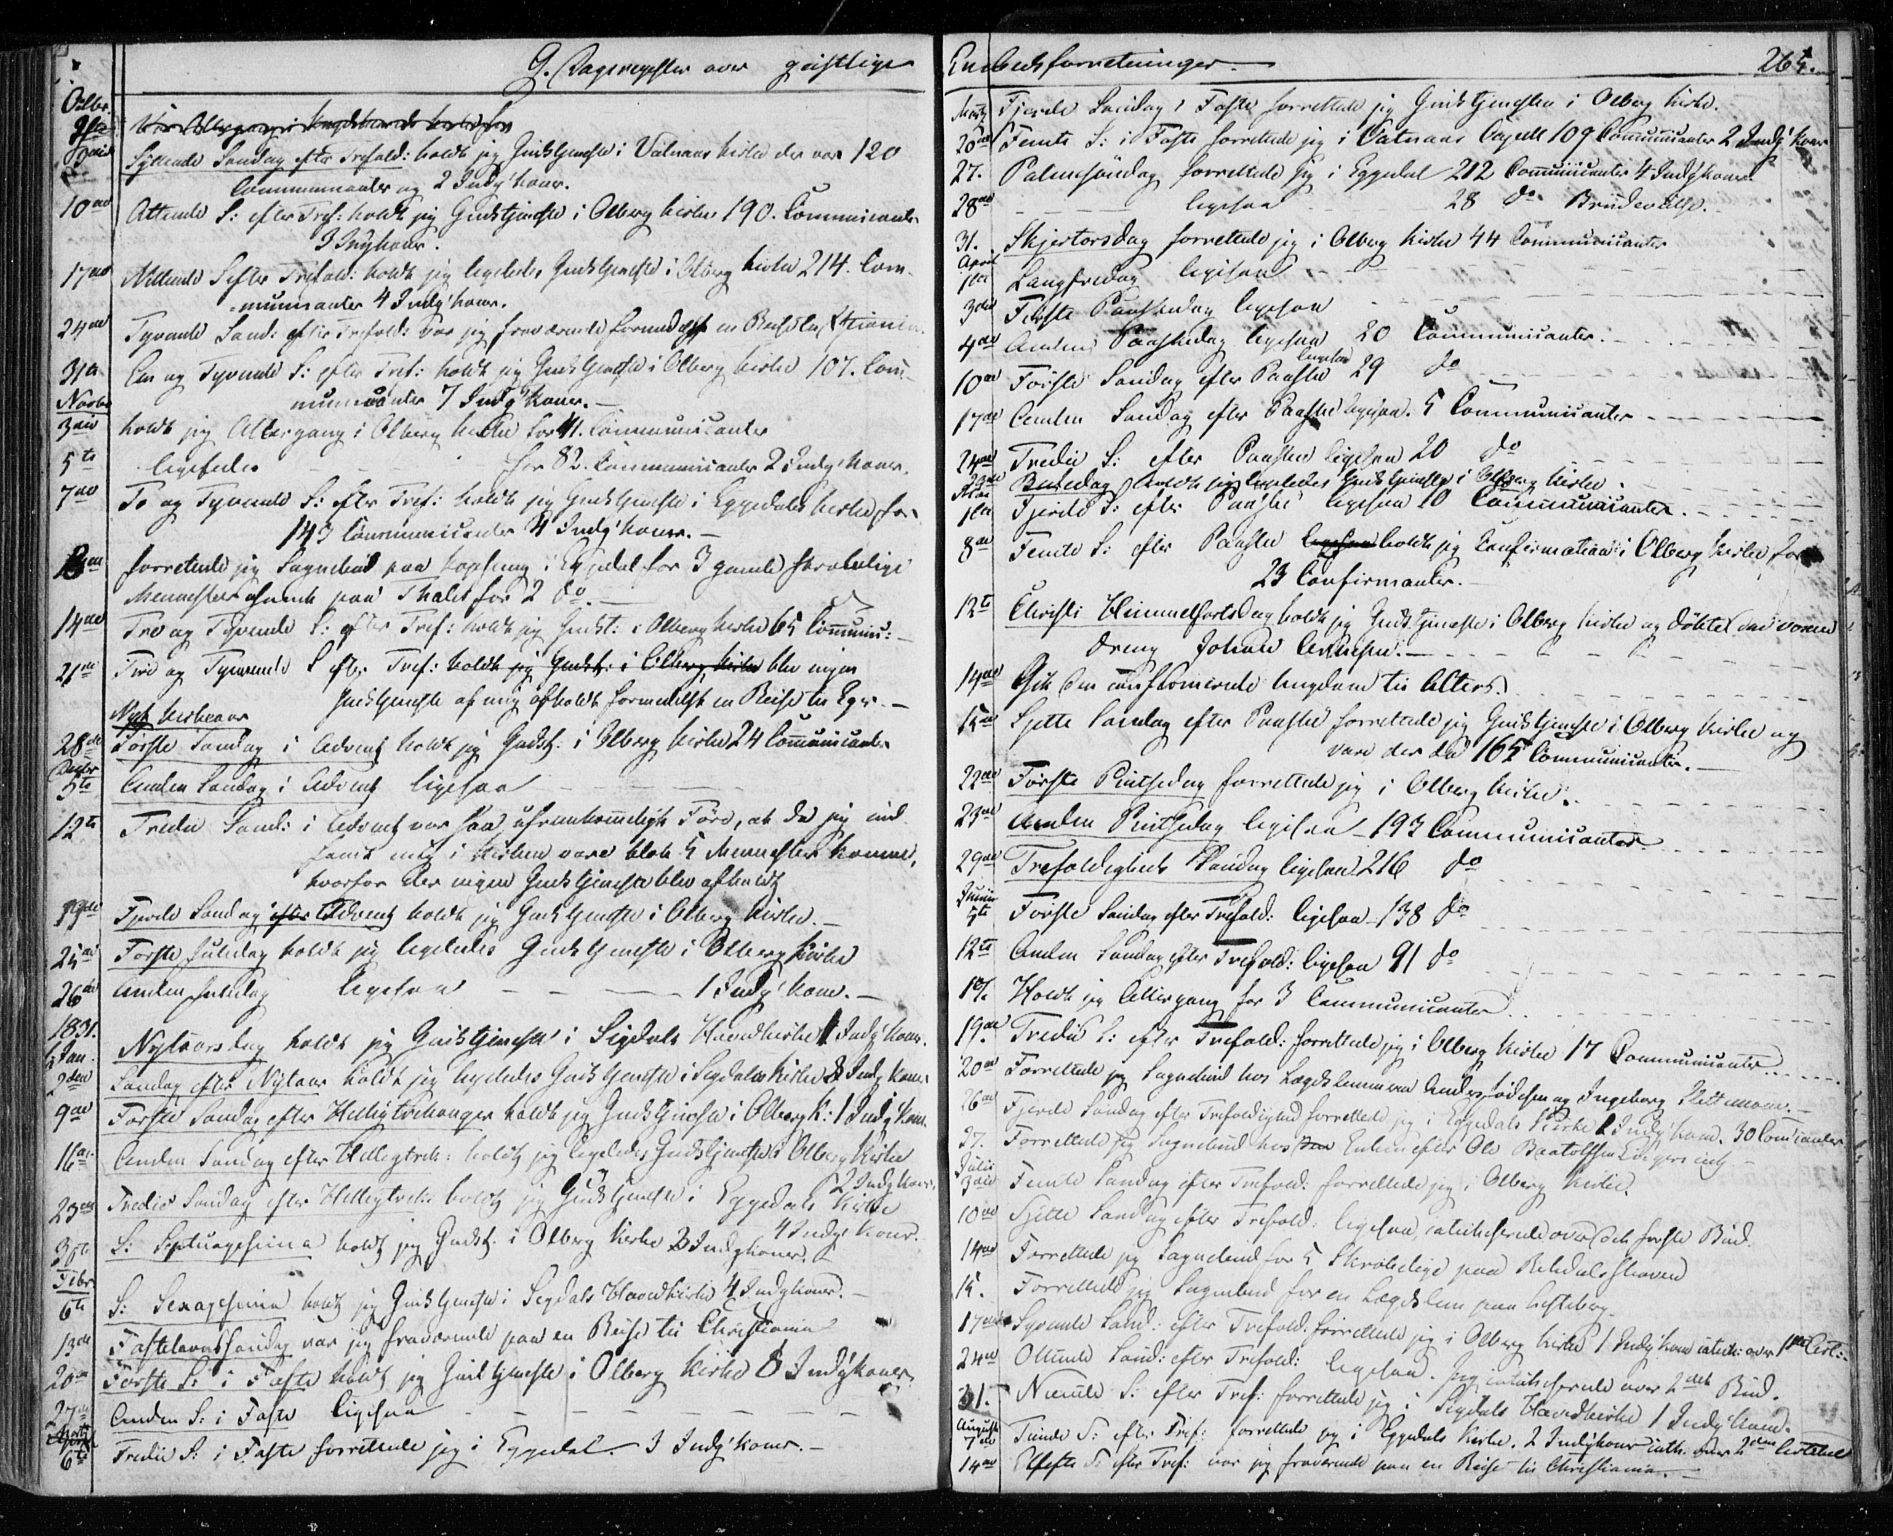 G. Dagsregister over geistlige Embedsforretninger. 265.
Octbr.
3die Syttende Søndag efter Trefold: holdt jeg Gudstjeneste i Vatnaas kirke der var 120
Communicanter og 2 Indg: koner.
10de Attende S: efter Tref: holdt jeg Gudstjeneste i Olberg kirke 190. Communicanter
3 Ing koner.
17de Nittende S. efter Trefold: holdt jeg ligeledes Gudstjeneste i Olberg kirke 214. Com-
municanter 4 Indg: koner.
24de Tyvende Sønd: efter Trefold: var jeg fraværende formedelst en Reise til
31te En og Tyvende S: efter Tref: holdt jeg Gudstjeneste i Olberg kirke 107. Com-
municanter 7 Indg: koner.
Novbr
3die holdt jeg Altergang i Olberg kirke for 41. Communicanter
5te ligeledes for 82. Communicanter 2 Indg: koner.
7de To og Tyvende S: efter Tref: holdt jeg Gudstjeneste i Eggedals kirke for
143 Communicanter 4 Indg: koner.
forrettede jeg Sognebud paa i Eggedal for 3 gamle skrøbelige
Mennesker paa Thalet for 2 do.
14de Tre og Tyvende S: efter Tref: holdt jeg Gudst: i Olberg kirke 65 Communic:
21de Fire og Tyvende S. eft: Tref: holdt jeg Gudst: i Olberg kirke blev ingen
Gudstjeneste af mig afholdt formedelst en Reise til Eger.
Nyt kirkeaar
28de Første Søndag i Advent holdt jeg Gudst: i Olberg kirke 24 Communicanter
Decbr
5te Anden Søndag i Advent ligesaa
12te Tredie Sønd: i Advent var saa ufremkommeligt Føre, at da jeg ind
fandt mig i kirken vare blot 5 Mennesker komne,
hvorfor der ingen Gudstjeneste blev afholdt
19de Fjerde Søndag efter Advent holdt jeg Gudstjeneste i Olberg kirke.
25de Første Juledag holdt jeg ligeledes Gudstjeneste i Olberg kirke
26de Anden Juledag ligesaa 1 Indg: kone.
1831.
1 Jan. Nytaarsdag holdt jeg Gudstjeneste i Sigdals Hovedkirke 1 Indg: kone.
2den Søndag efter Nytaar holdt jeg ligeledes Gudstjeneste i Segdals kirke 3 Indg: koner
9de Første Søndag efter Helligtrekonger holdt jeg Gudstjeneste i Olberg K: 1 Indg: kone.
16de Anden Søndag efter Helligtrek: holdt jeg ligeledes Gudstjeneste i Olberg kirke
2 Indg: koner.
23de Tredie Søndag efter Helligtrek: holdt jeg Gudstjeneste i Eggedals Kirke
4 Indg: koner.
30te S: Septuagesima holdt jeg Gudst: i Olberg kirke 3 Indg: koner.
Febr
6te S: Sexagesima holdt jeg Gudstjeneste i Segdals Hovedkirke 4 Indg: koner.
13de Fastelavnssøndag var jeg fraværende paa en Reise til Christiania
20de Første S: i Faste holdt jeg Gudstjeneste i Olberg kirke 8 Indg: koner
27de Anden S: i Faste ligesaa
Martz
6te Tredie S: i Faste forrettede jeg i Eggedal. 3 Indg: koner.
Martz Fjerde Søndag i Faste forrettede jeg Gudstjenesten i Olberg kirke.
20de Femte S: i Faste forrettede jeg i Vatnaas Capell 109 Communicanter 2 Indg: koner
27. Palmesøndag forrettede jeg i Eggedal 212 Communicanter 4 Indg: koner.
28de ligesaa 28 do Brudevielse.
31. Skjertorsdag forrettede jeg i Olberg kirke 44 Communicanter
April
1te Langfredag ligesaa
3die Første Paaskedag ligesaa
4de Anden Paaskedag ligesaa 20 Communicanter.
10de Første Søndag efter Paaske ligesaa 29 do
17de Anden Søndag efter Paaske ligesaa. 5 Communicanter
24de Tredie S: efter Paaske ligesaa 20 do
Bededag holdt jeg ligeledes Gudstjeneste i Olberg kirke.
Mai
1te Fjerde S: efter Paaske ligesaa 10 Communicanter.
8de Femte S: efter Paaske ligesaa holdt jeg Confirmation i Olberg kirke for
23 Confirmanter.
12te Christi Himmelfartsdag holdt jeg Gudstjeneste i Olberg kirke og døbte
dreng Johan
14de Gik den confirmerede Ungdom til Alters.
15de Sjette Søndag efter Paaske forrettede jeg Gudstjeneste i Olberg kirke og
vare der da 165 Communicanter.
22de Første Pintsedag forrettede jeg i Olberg kirke.
23de Anden Pintsedag ligesaa 193 Communicanter
29de Trefoldigheds Søndag ligesaa 216 do
Junii
5te Første Søndag efter Trefold: ligesaa 138 do
12te Anden Søndag efter Trefold: ligesaa 91 do
17. Holdt jeg Altergang for 3 Communicanter
19de Tredie S: efter Trefold: forrettede jeg i Olberg kirke 17 Communicanter.
20de Forrettede jeg Sognebud hos Lægdslemmerne Anders og Ingeborg
26de Fjerde Søndag efter Trefoldighed forrettede jeg i Eggedals Kirke 1 Indg: kone. 30 Com:canter
27. Forrettede jeg Sognebud hos Enken efter Ole
Julii
3die Femte Søndag efter Trefold: forrettede jeg i Olberg kirke.
10de Sjette Søndag efter Trefold: ligesaa, catechiserede over det første Bud.
14de Forrettede jeg Sognebud for 5 Skrøbelige paa
15. Forrettede jeg Sognebud for en Lægdslem paa
17de Syvende Sønd: efter Trefold: forrettede jeg i Olberg kirke 1 Indg: kone catech: over 1ste Art:
24de Ottende Sønd: efter Trefold: ligesaa. Jeg catechiserede over 2det Bud.
31. Niende S: efter Tref: forrettede jeg i Segdals Hovedkirke 1 Indg: kone.
August
7de Tiende S: efter Tref: forrettede jeg i Eggedals kirke. 2 Indg: koner cath. over 2den Artikel
14de Ellefte S: efter Tref: var jeg fraværende paa en Reise til Christiania.